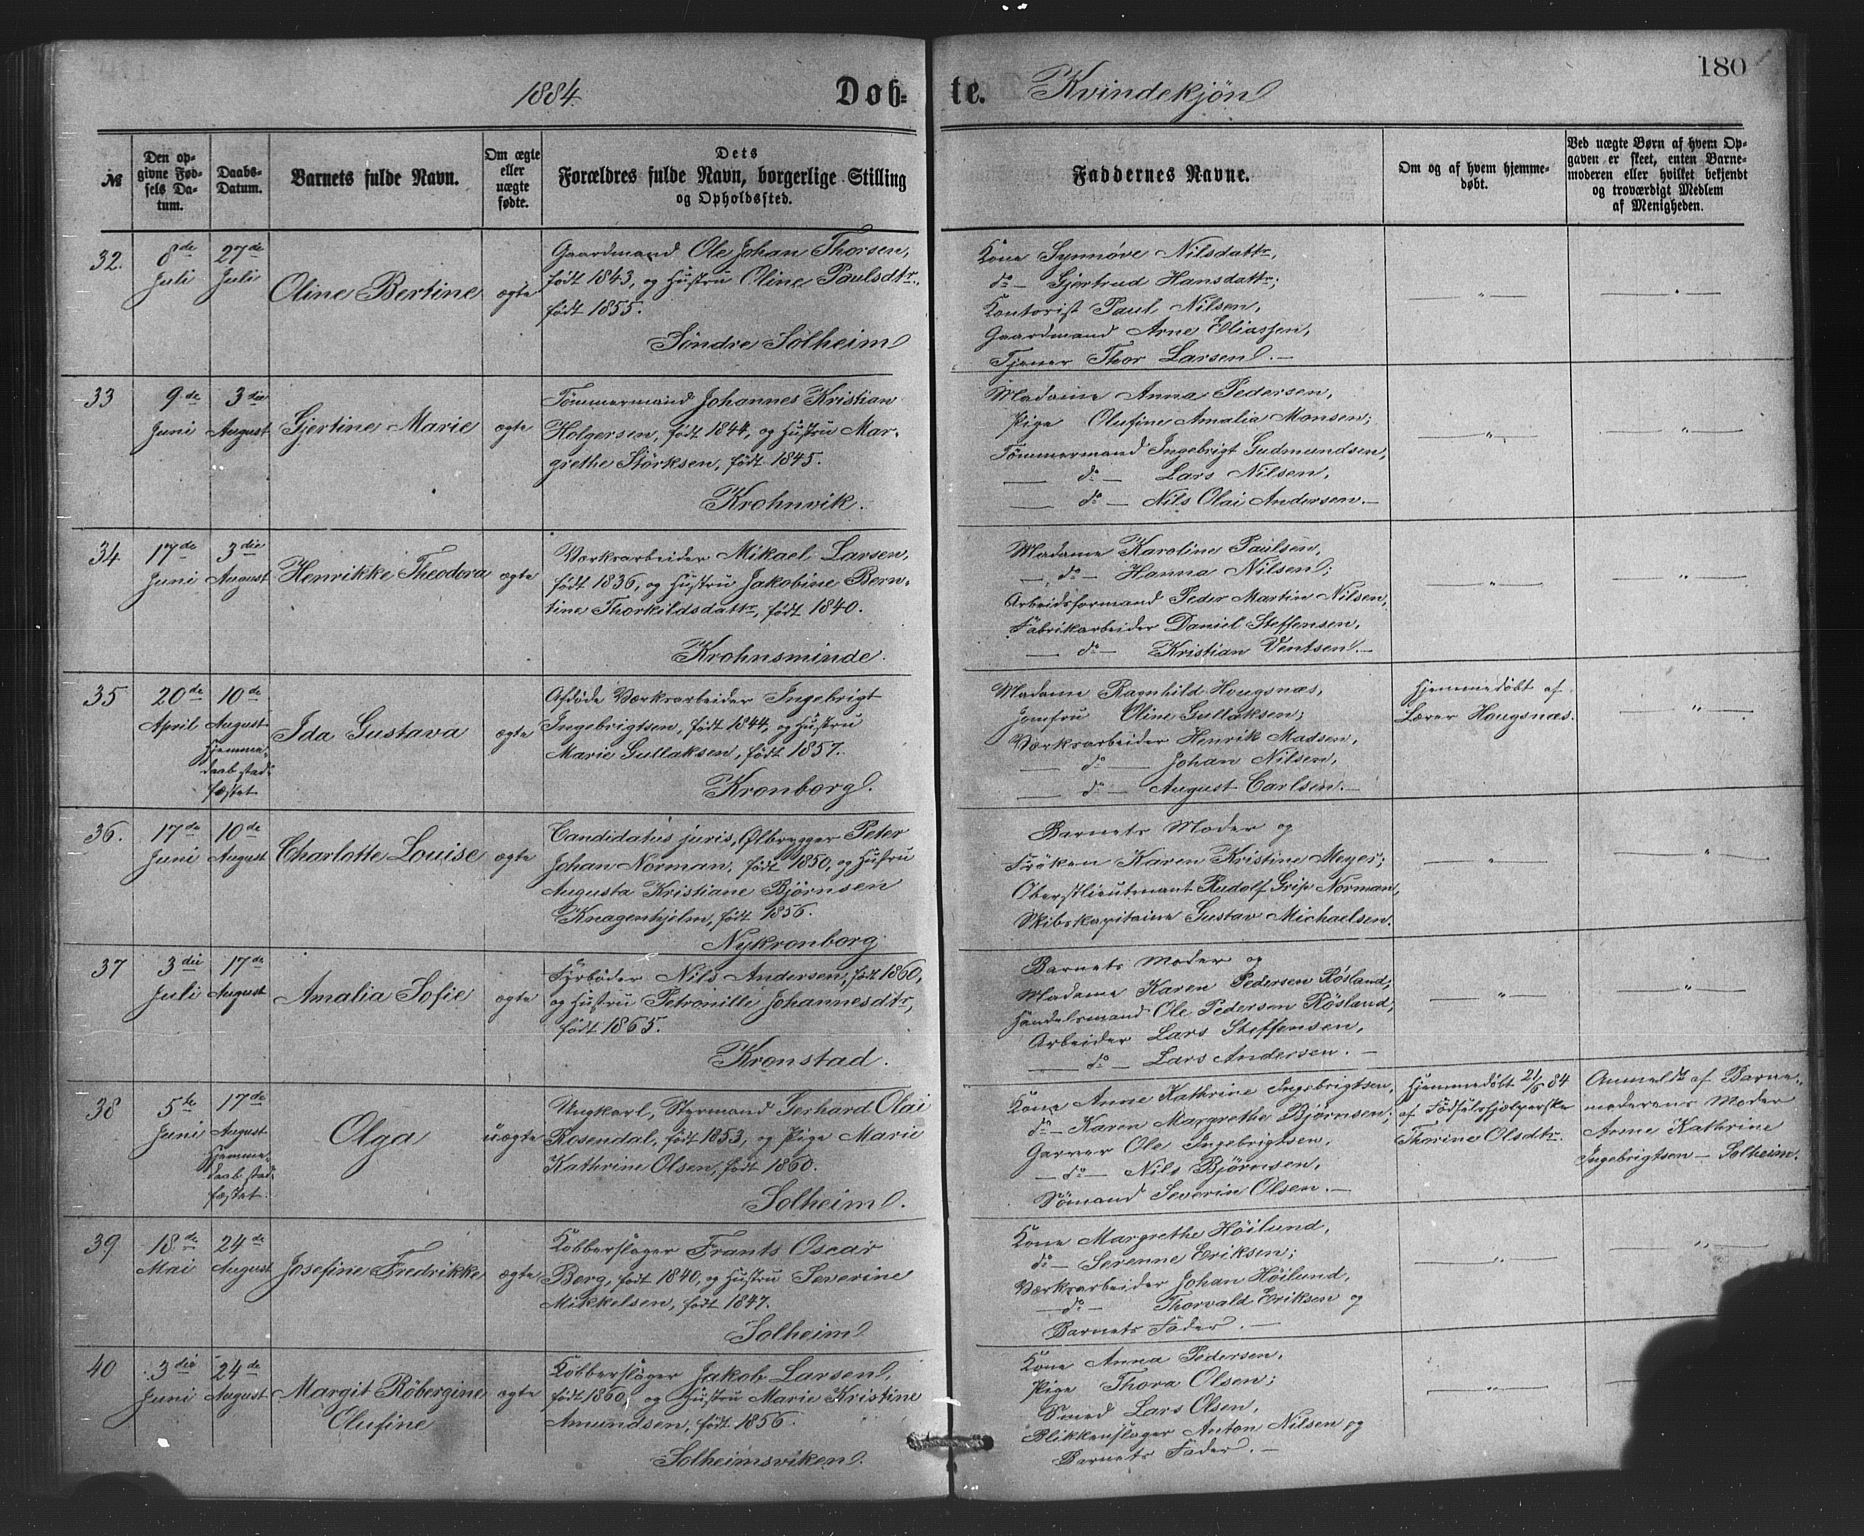 180
1884. Døb-te. Kvindekjøn
№
Den op-
givne Fød-
sels Da-
tum.
Daabs-
Datum.
Barnets fulde Navn.
Om ægte
eller
uægte
fødte.
Dets
Forældres fulde Navn, borgerlige Stilling
og Opholdssted.
Faddernes Navne.
Om og af hvem hjemme-
døbt.
Ved uægte Børn af hvem Op-
gaven er skeet, enten Barne-
moderen eller hvilket bekjendt
og troværdigt Medlem
af Menigheden.
32.
8de
Juli
27de
Juli
Oline Bertine
ægte
Gaardmand Ole Johan Thorsen,
født 1843, og Hustru Oline Paulsdtr.,
født 1855.
Søndre Solheim
Kone Synnøve Nilsdattr,
do - Gjertrud Hansdattr;
Kontorist Paul Nilsen,
Gaardmand Arne Eliassen,
Tjener Thor Larsen. -
— " —
— " —
33
9de
Juni
3die
August
Gjertine Marie
ægte
Tømmermand Johannes Kristian
Holgersen, født 1844, og Hustru Mar-
grethe Størksen, født 1845.
Krohnvik.
Madame Anna Pedersen,
Pige Olufine Amalia Monsen;
Tømmermand Ingebrigt Gudmundsen,
— do - Lars Nilsen,
— do - Nils Olai Andersen. -
— " —
— " —
34
17de
Juni
3die
August
Henrikke Theodora
ægte
Værksarbeider Mikael Larsen,
født 1836, og Hustru Jakobine Bern-
tine Thorkildsdattr, født 1840.
Krohnsminde.
Madame Karoline Paulsen,
- do - Hanna Nilsen;
Arbeidsformand Peder Martin Nilsen,
Fabrikarbeider Daniel Steffensen,
— do - Kristian Ventsen. -
— " —
— " —
35
20de
April
10de
August
Hjemme-
daab stad-
fæstet
Ida Gustava
ægte
Afdøde Værksarbeider Ingebrigt
Ingebrigtsen, født 1844, og Hustru
Marie Gullaksen, født 1857.
Kronborg.
Madame Ragnhild Hougsnæs,
Jomfru Oline Gullaksen;
Værksarbeider Henrik Madsen,
— do — Johan Nilsen,
— do - August Carlsen. -
Hjemmedøbt af
Lærer Hougsnæs.
— " —
36.
17de
Juni
10de
August
Charlotte Louise
ægte
Candidatus juris, Ølbrygger Peter
Johan Norman, født 1850, og Hustru
Augusta Kristiane Bjørnsen
Knagenhjelm, født 1856.
Nykronborg
Barnets Moder og
Frøken Karen Kristine Meyer;
Oberstlieutnant Rudolf Grip Norman,
Skibskapitaine Gustav Michaelsen.
— " —
— " —
37
3die
Juli
17de
August
Amalia Sofie
ægte
Fyrbøder Nils Andersen, født 1860,
og Hustru Petronille Johannesdtr,
født 1865.
Kronstad.
Barnets Moder og
Madame Karen Pedersen Røsland;
Handelsmand Ole Pedersen Røsland,
Arbeider Lars Steffensen,
do - Lars Andersen. -
— " —
— " —
38
5te
Juni
17de
August
Hjemme-
daab stad-
fæstet.
Olga
uægte
Ungkarl, Styrmand Gerhard Olai
Rosendal, født 1853, og Pige Marie
Kathrine Olsen, født 1860.
Solheim.
Kone Anne Kathrine Ingebrigtsen,
do - Karen Margrethe Bjørnsen;
Garver Ole Ingebrigtsen,
- do - Nils Bjørnsen,
Sømand Severin Olsen. -
Hjemmedøbt 21/6 84
af Fødselshjælperske
Thorine Olsdtr.
Anmeldt af Barne-
moderens Moder
Anne Kathrine
Ingebrigtsen - Solheim.
39
18de
Mai
24de
August
Josefine Fredrikke
ægte
Kobberslager Frants Oscar
Berg, født 1840, og Hustru Severine
Mikkelsen, født 1847.
Solheim
Kone Margrethe Höilund,
do - Serenne Eriksen;
Værksarbeider Johan Höilund,
- do - Thorvald Eriksen og
Barnets Fader. -
"
— " —
40
3die
Juni
24de
August
Margit Röbergine
Olufine
ægte
Kobberslager Jakob Larsen,
født 1860, og Hustru Marie Kristine
Amundsen, født 1856.
Solheimsviken.
Kone Anna Pedersen,
Pige Thora Olsen;
Smed Lars Olsen,
Blikkenslager Anton Nilsen og
Barnets Fader. -
— " —